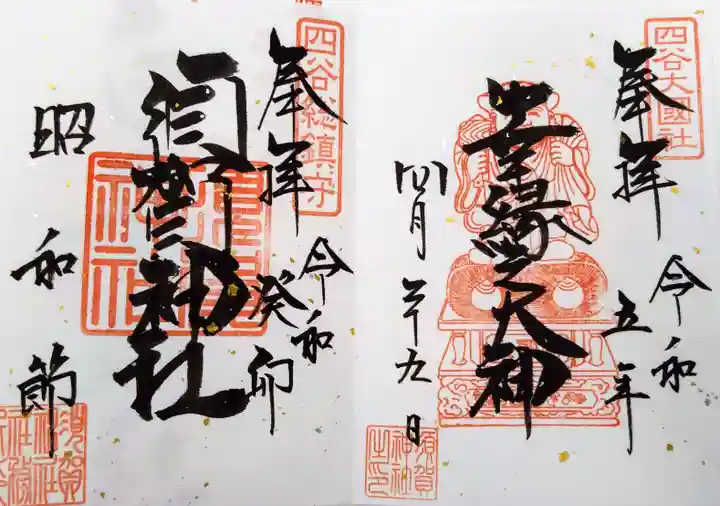 四谷大國社
奉拝
令和
五年
幸縁之大神
四月
廿九日
四谷総鎮守
奉拝
令和
癸卯
須賀神社
昭和節
須賀
神社